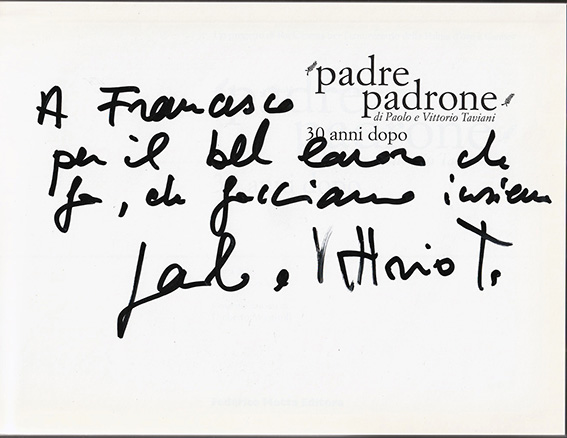 padre
padrone
di Paolo e Vittorio Taviani
30 anni dopo
A Francesco
per il bel lavoro che
fa, che facciamo insieme
Paolo e Vittorio T.